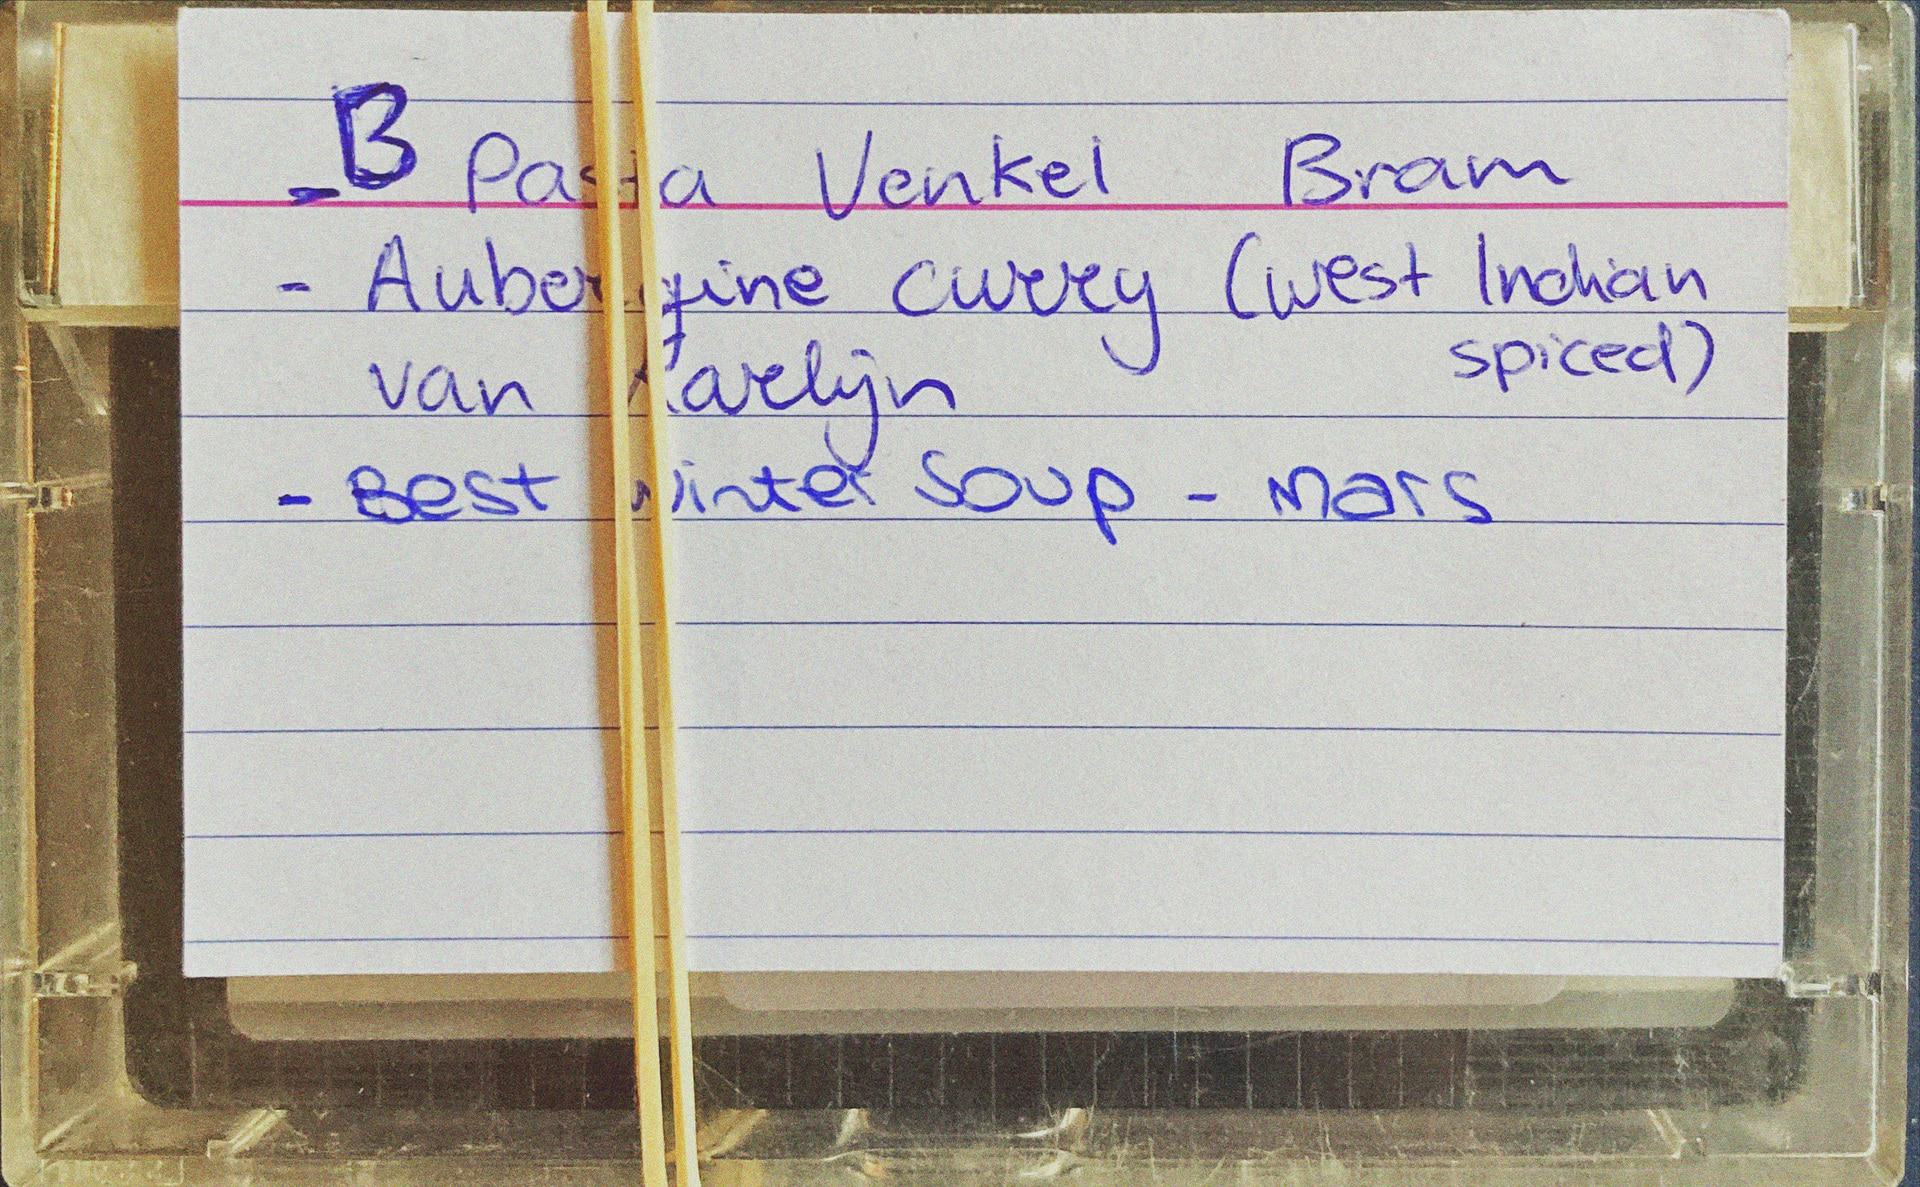 - B Pasta Venkel Bram
- Aubergine curry (west Indian
spiced)
van Karelijn
- Best winter soup - Mars